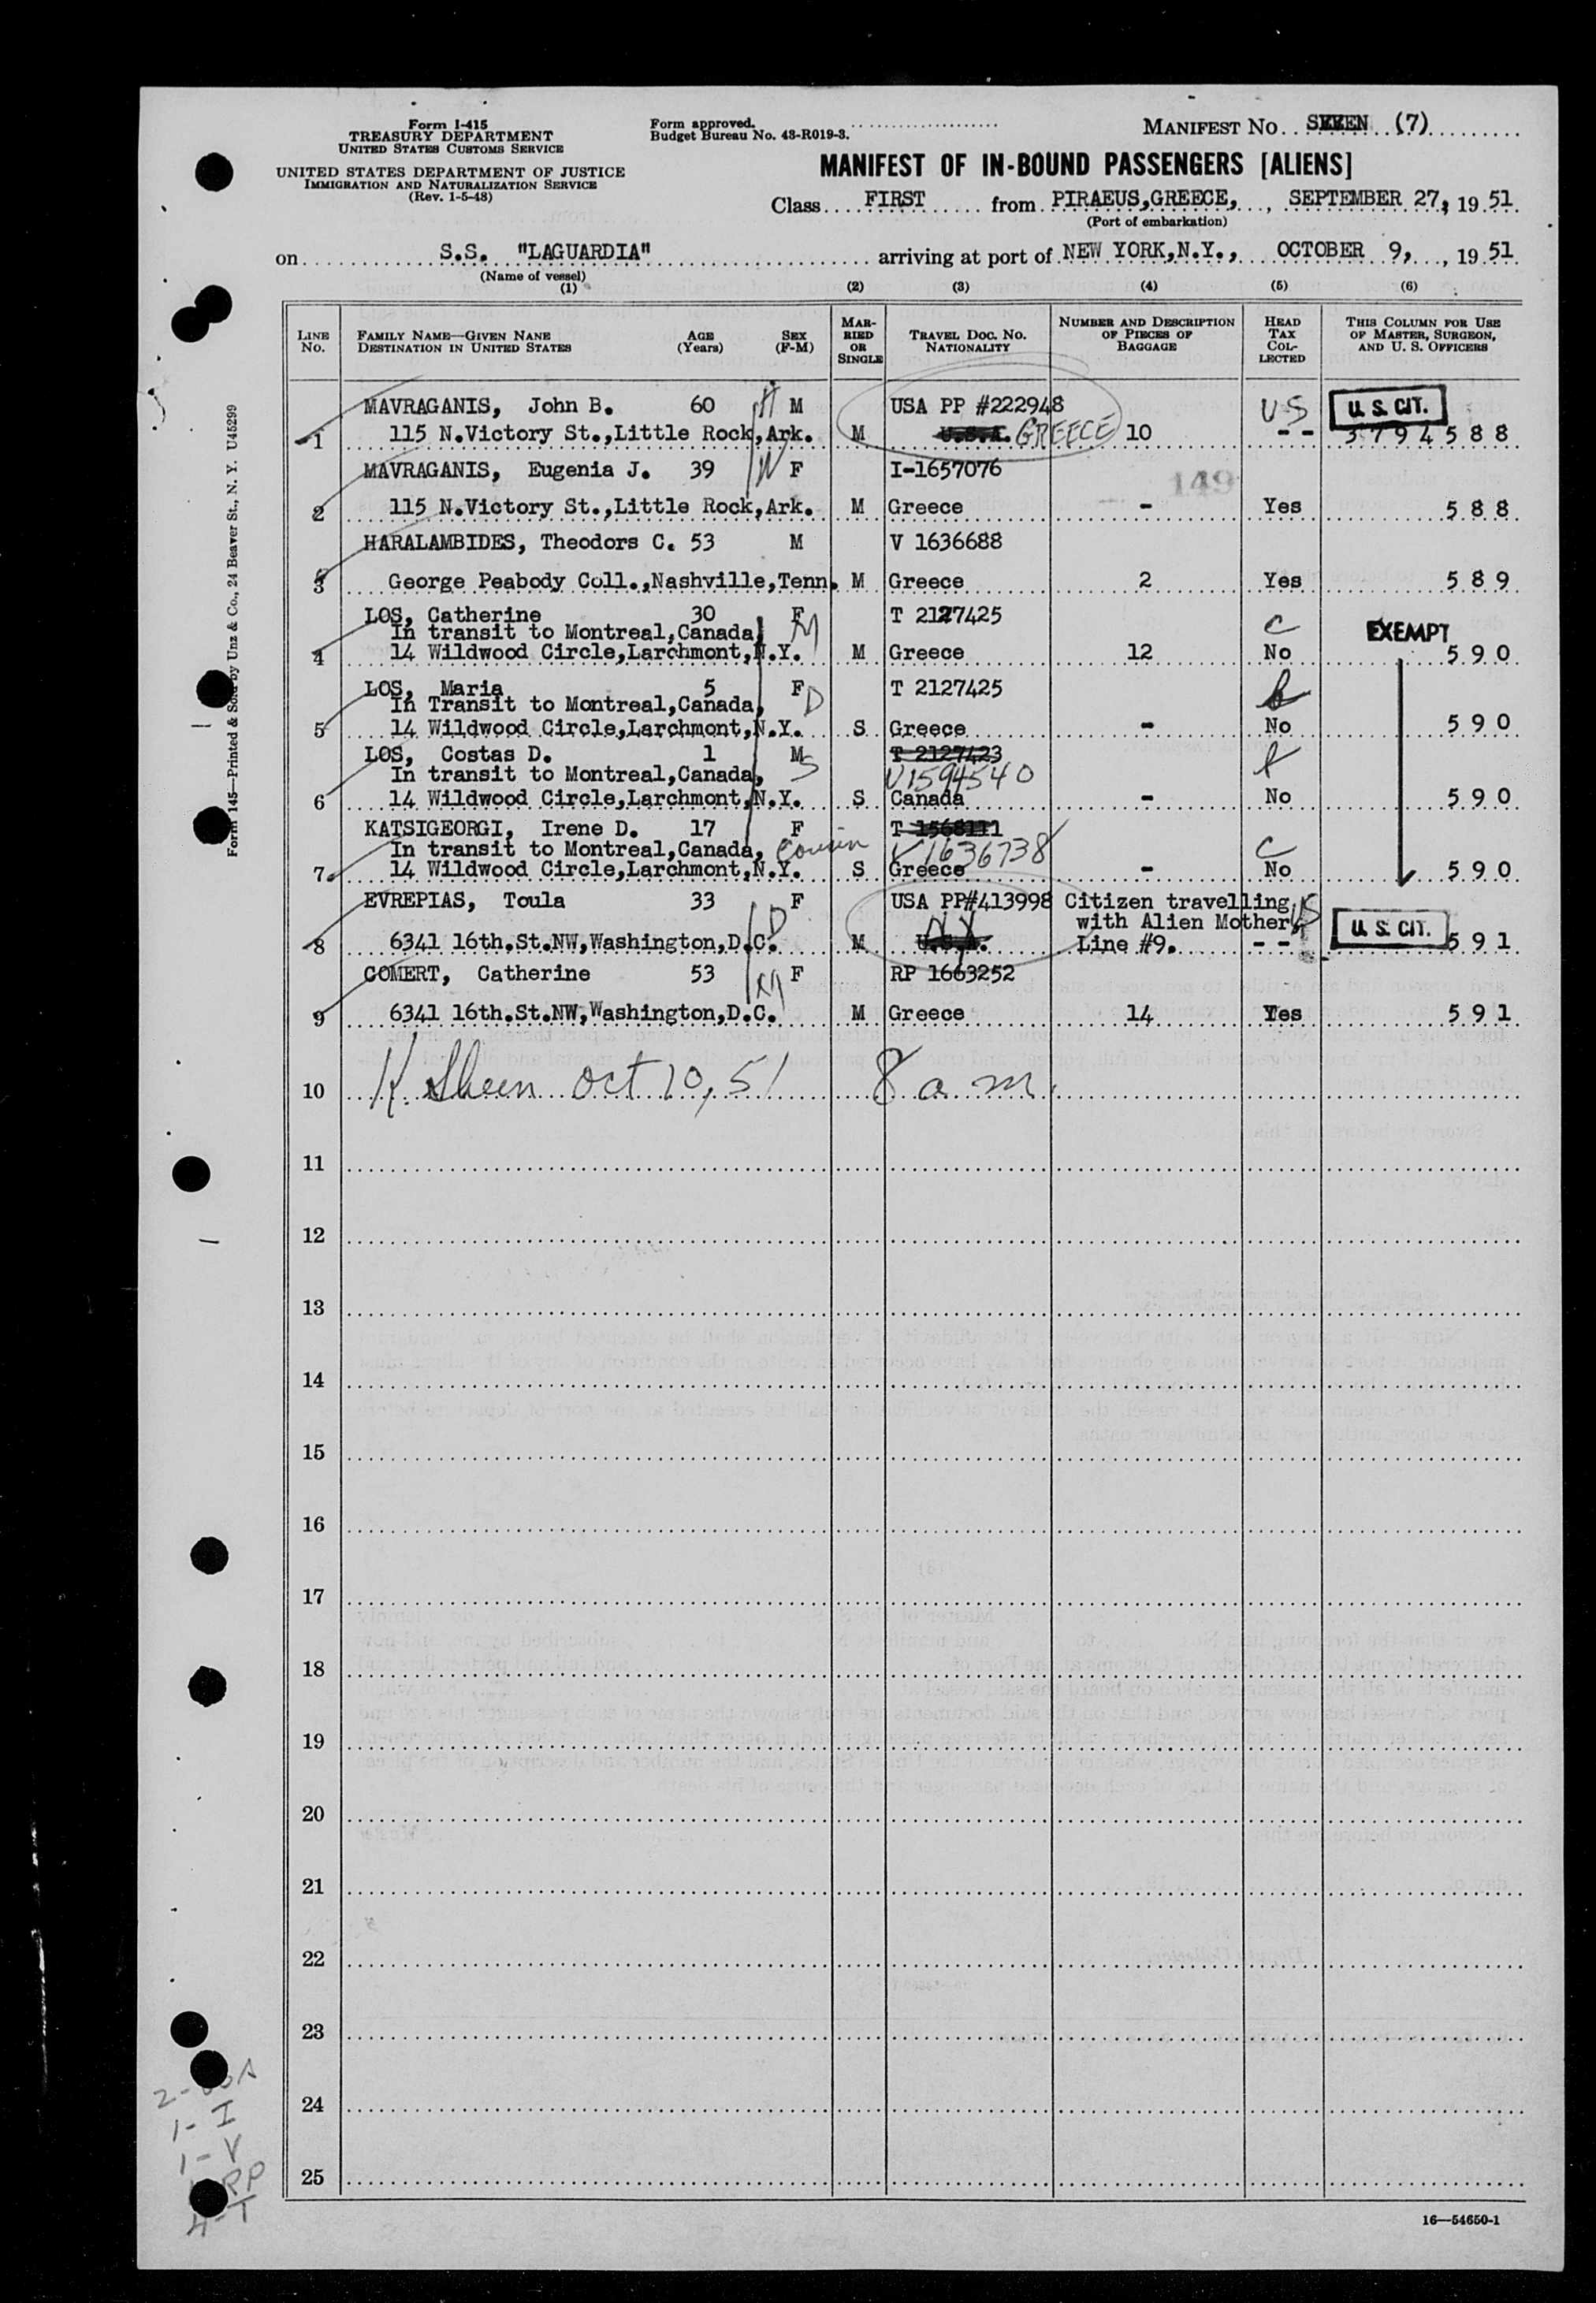 Form I-415
TREASURY DEPARTMENT
UNITED STATES CUSTOMS SERVICE
UNITED STATES DEPARTMENT OF JUSTICE
IMMIGRATION AND NATURALIZATION SERVICE
(Rev. 1-5-48)
Form approved.
Budget Bureau No. 43-R019-3.
MANIFEST NO. SEVEN (7)
MANIFEST OF IN-BOUND PASSENGERS [ALIENS]
Class FIRST from PIRAEUS,GREECE, , SEPTEMBER 27, 19 51
(Port of embarkation)
on S.S. "LAGUARDIA" arriving at port of NEW YORK,N.Y., OCTOBER 9, , 19 51
(Name of vessel)
(1) (2) (3) (4) (5) (6)
LINE No. FAMILY NAME—GIVEN NANE DESTINATION IN UNITED STATES AGE (Years) SEX (F-M) MARRIED OR SINGLE TRAVEL DOC. NO. NATIONALITY NUMBER AND DESCRIPTION OF PIECES OF BAGGAGE HEAD TAX COLLECTED THIS COLUMN FOR USE OF MASTER, SURGEON, AND U. S. OFFICERS
MAVRAGANIS, John B. 60 H M USA PP #222948 US U. S. CIT.
1 115 N.Victory St.,Little Rock,Ark. M U.S.A. GREECE 10 -- 3 7 9 4 5 8 8
MAVRAGANIS, Eugenia J. 39 W F I-1657076
149
2 115 N.Victory St.,Little Rock,Ark. M Greece - Yes 5 8 8
HARALAMBIDES, Theodors C. 53 M V 1636688
3 George Peabody Coll.,Nashville,Tenn. M Greece 2 Yes 5 8 9
LOS, Catherine 30 F M T 2127425 C EXEMPT
In transit to Montreal,Canada,
4 14 Wildwood Circle,Larchmont,N.Y. M Greece 12 No 5 9 0
LOS, Maria 5 F D T 2127425
In Transit to Montreal,Canada,
5 14 Wildwood Circle,Larchmont,N.Y. S Greece - No 5 9 0
LOS, Costas D. 1 M S T 2127423
In transit to Montreal,Canada, V1594540
6 14 Wildwood Circle,Larchmont,N.Y. S Canada - No 5 9 0
KATSIGEORGI, Irene D. 17 F T 1568111
In transit to Montreal,Canada, Cousin V1636738 C
7 14 Wildwood Circle,Larchmont,N.Y. S Greece - No 5 9 0
EVREPIAS, Toula 33 F USA PP#413998 Citizen travelling US
D with Alien Mother U. S. CIT.
8 6341 16th.St.NW,Washington,D.C. M U.S.A. Line #9. -- 5 9 1
GOMERT, Catherine 53 M F RP 1663252
9 6341 16th.St.NW,Washington,D.C. M Greece 14 Yes 5 9 1
10 K. Sheen Oct 10, 51 8 a.m.
11
12
13
14
15
16
17
18
19
20
21
22
23
24
25
16—54650-1
Form 145—Printed & Sold by Unz & Co., 24 Beaver St., N. Y. U45299
1-I
1-V
RP
4-T